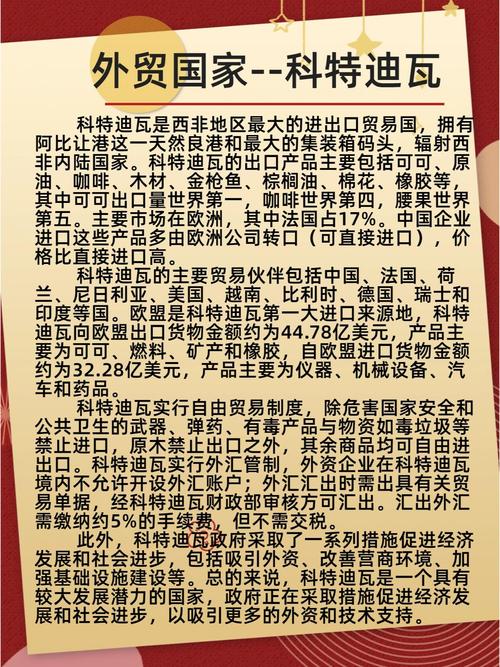 外贸国家--科特迪瓦
科特迪瓦是西非地区最大的进出口贸易国，拥有
阿比让港这一天然良港和最大的集装箱码头，辐射西
非内陆国家。科特迪瓦的出口产品主要包括可可、原
油、咖啡、木材、金枪鱼、棕榈油、棉花、橡胶等，
其中可可出口量世界第一，咖啡世界第四，腰果世界
第五。主要市场在欧洲，其中法国占17%。中国企业
进口这些产品多由欧洲公司转口（可直接进口），价
格比直接进口高。
科特迪瓦的主要贸易伙伴包括中国、法国、荷
兰、尼日利亚、美国、越南、比利时、德国、瑞士和
印度等国。欧盟是科特迪瓦第一大进口来源地，科特
迪瓦向欧盟出口货物金额约为44.78亿美元，产品主
要为可可、燃料、矿产和橡胶，自欧盟进口货物金额
约为32.28亿美元，产品主要为仪器、机械设备、汽
车和药品。
科特迪瓦实行自由贸易制度，除危害国家安全和
公共卫生的武器、弹药、有毒产品与物资如毒垃圾等
禁止进口，原木禁止出口之外，其余商品均可自由进
出口。科特迪瓦实行外汇管制，外资企业在科特迪瓦
境内不允许开设外汇账户；外汇汇出时需出具有关贸
易单据，经科特迪瓦财政部审核方可汇出。汇出外汇
需缴纳约5%的手续费，但不需交税。
此外，科特迪瓦政府采取了一系列措施促进经济
发展和社会进步，包括吸引外资、改善营商环境、加
强基础设施建设等。总的来说，科特迪瓦是一个具有
较大发展潜力的国家，政府正在采取措施促进经济发
展和社会进步，以吸引更多的外资和技术支持。